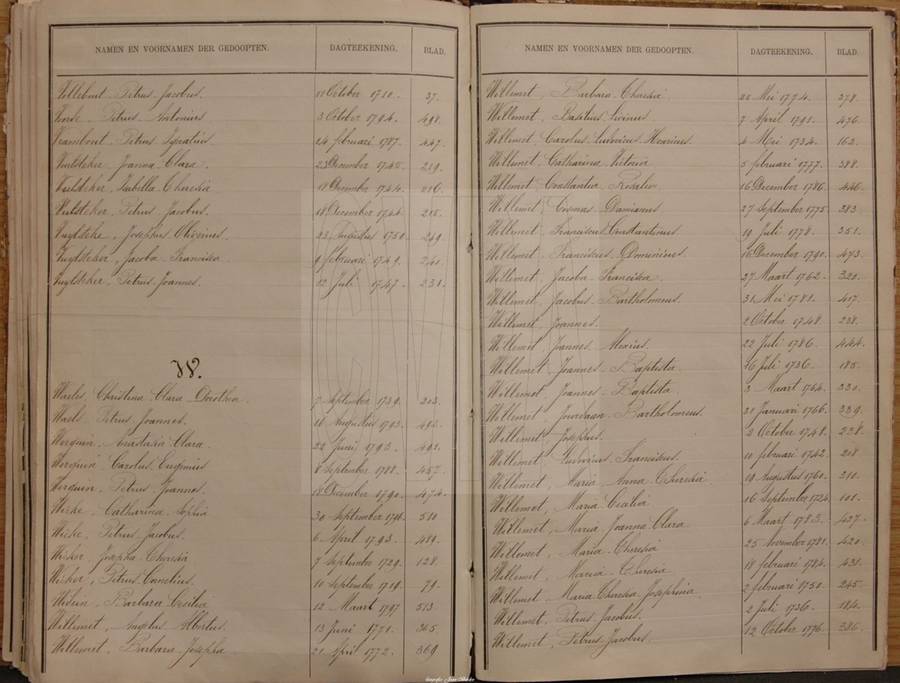 NAMEN EN VOORNAMEN DER GEDOOPTEN. DAGTEEKENING. BLAD.
Petrus Jacobus. 11 October 1710. 37.
Petrus Antonius 3 October 1794. 498.
Petrus Ignatius 24 februari 1787. 447.
Joanna Clara. 23 December 1745. 219.
Isabella Theresia 18 December 1744. 216.
Petrus Jacobus. 18 December 1744. 215.
Josephus Oliverius. 23 Augustus 1750. 249.
Jacoba Francisca 9 februari 1749. 241.
Petrus Joannes. 12 Juli 1747. 231.
W.
Christina Clara Dorothea. 7 September 1739. 203.
Waels Petrus Joannes. 16 Augustus 1793. 493.
Werquin Anastasia Clara 22 Juni 1793. 492.
Werquin Carolus Eugenius 8 September 1788. 457.
Werquin, Petrus Joannes. 18 December 1790. 474.
Catharina Sophia 30 September 1796. 510.
Petrus Jacobus. 6 April 1793. 489.
Josepha Theresia 7 September 1729. 128.
Petrus Cornelius. 10 September 1719. 79.
Barbara Cecilia 12 Maart 1797. 513.
Willemet, Angelus Albertus. 13 Juni 1771. 365.
Willemet, Barbara Josepha 21 April 1772. 369
NAMEN EN VOORNAMEN DER GEDOOPTEN. DAGTEEKENING. BLAD.
Willemet, Barbara Theresia 20 Mei 1774. 378.
Willemet, Basilius Livinus 7 April 1791. 476.
Willemet, Carolus Ludovicus 4 Mei 1734. 162.
Willemet, Catharina Victoria 5 februari 1777. 388.
Willemet, Constantia Rosalia 16 December 1786. 446.
Willemet, Cosmas Damianus 27 September 1775. 383.
Willemet, Franciscus Constantinus 19 Juli 1778. 351.
Willemet, Franciscus Dominicus. 16 December 1790. 473.
Willemet, Jacoba Francisca 27 Maart 1762. 320.
Willemet, Jacobus Bartholmeus. 31 Mei 1781. 417.
Willemet, Joannes. 2 October 1748. 238.
Willemet, Joannes 22 Juli 1786. 444.
Willemet, Joannes Baptista 16 Juli 1736. 185.
Willemet, Joannes Baptista 3 Maart 1764. 330.
Willemet, Bartholmeus 21 Januari 1766. 339.
Willemet, Josephus. 2 October 1748. 238.
Willemet, Ludovicus Franciscus. 10 februari 1742. 208
Willemet, Maria Anna Theresia 19 Augustus 1760. 310.
Willemet, Maria Cecilia 16 September 1724. 101.
Willemet, Maria Joanna Clara 6 Maart 1783. 427.
Willemet, Maria Theresia 25 November 1781. 420.
Willemet, Maria Theresia 18 februari 1784. 431.
Willemet, Maria Theresia Josephina 2 februari 1750. 245.
Willemet, Petrus Jacobus. 2 Juli 1736. 184.
Willemet, Petrus Jacobus. 12 October 1776. 386.